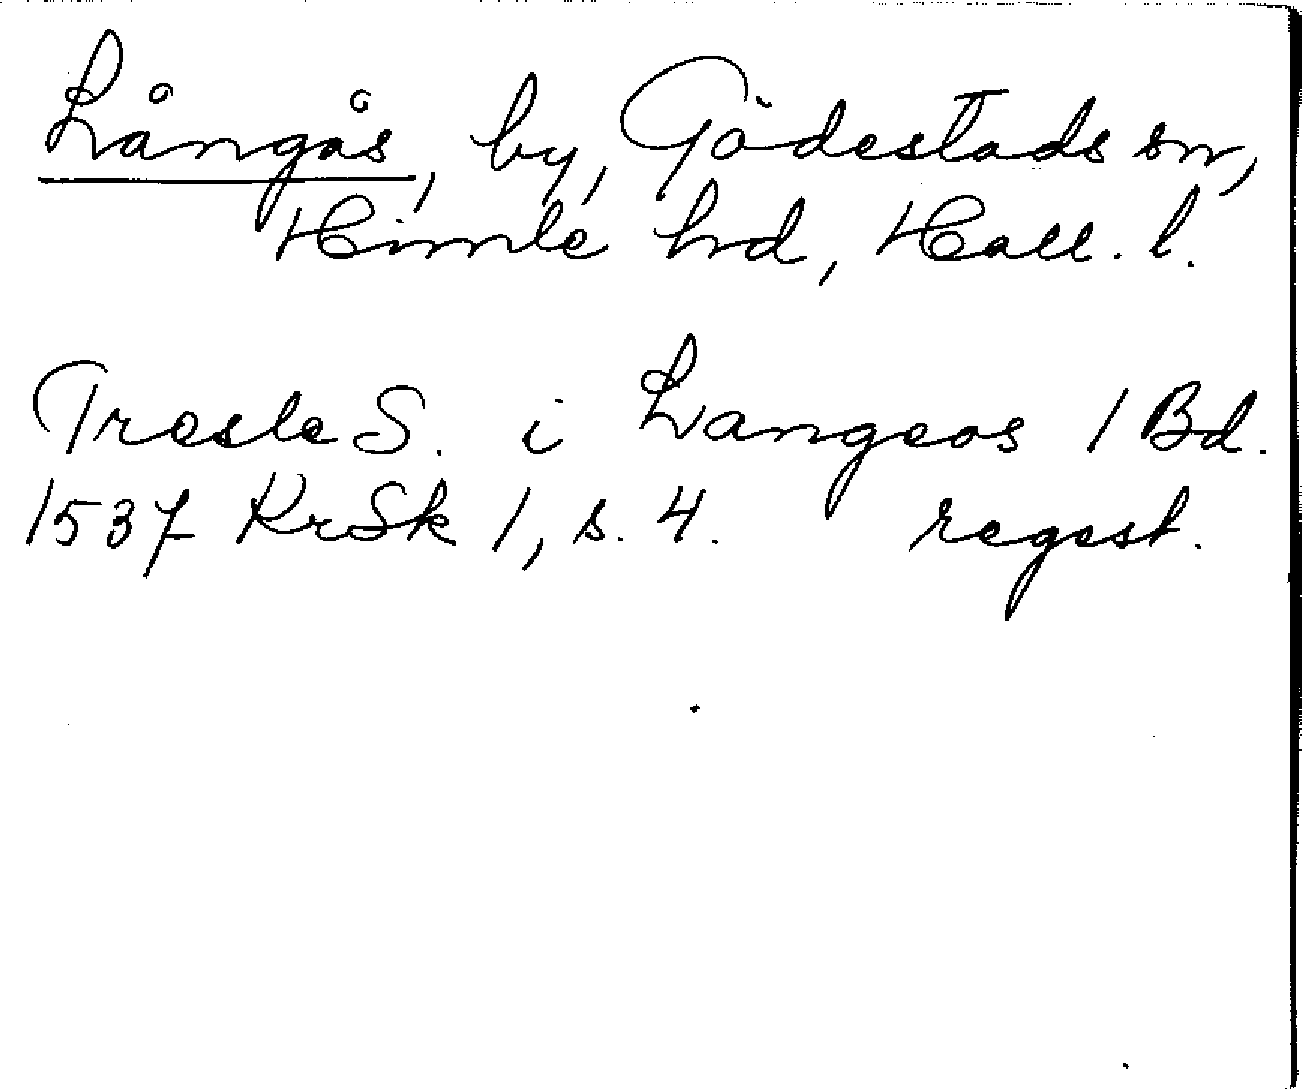 Långås, by, Gödestads sn,
Himle hd, Hall. l.
Troels S. i Langaos 1 Bd.
1537 KrSk 1, s. 4. regest.